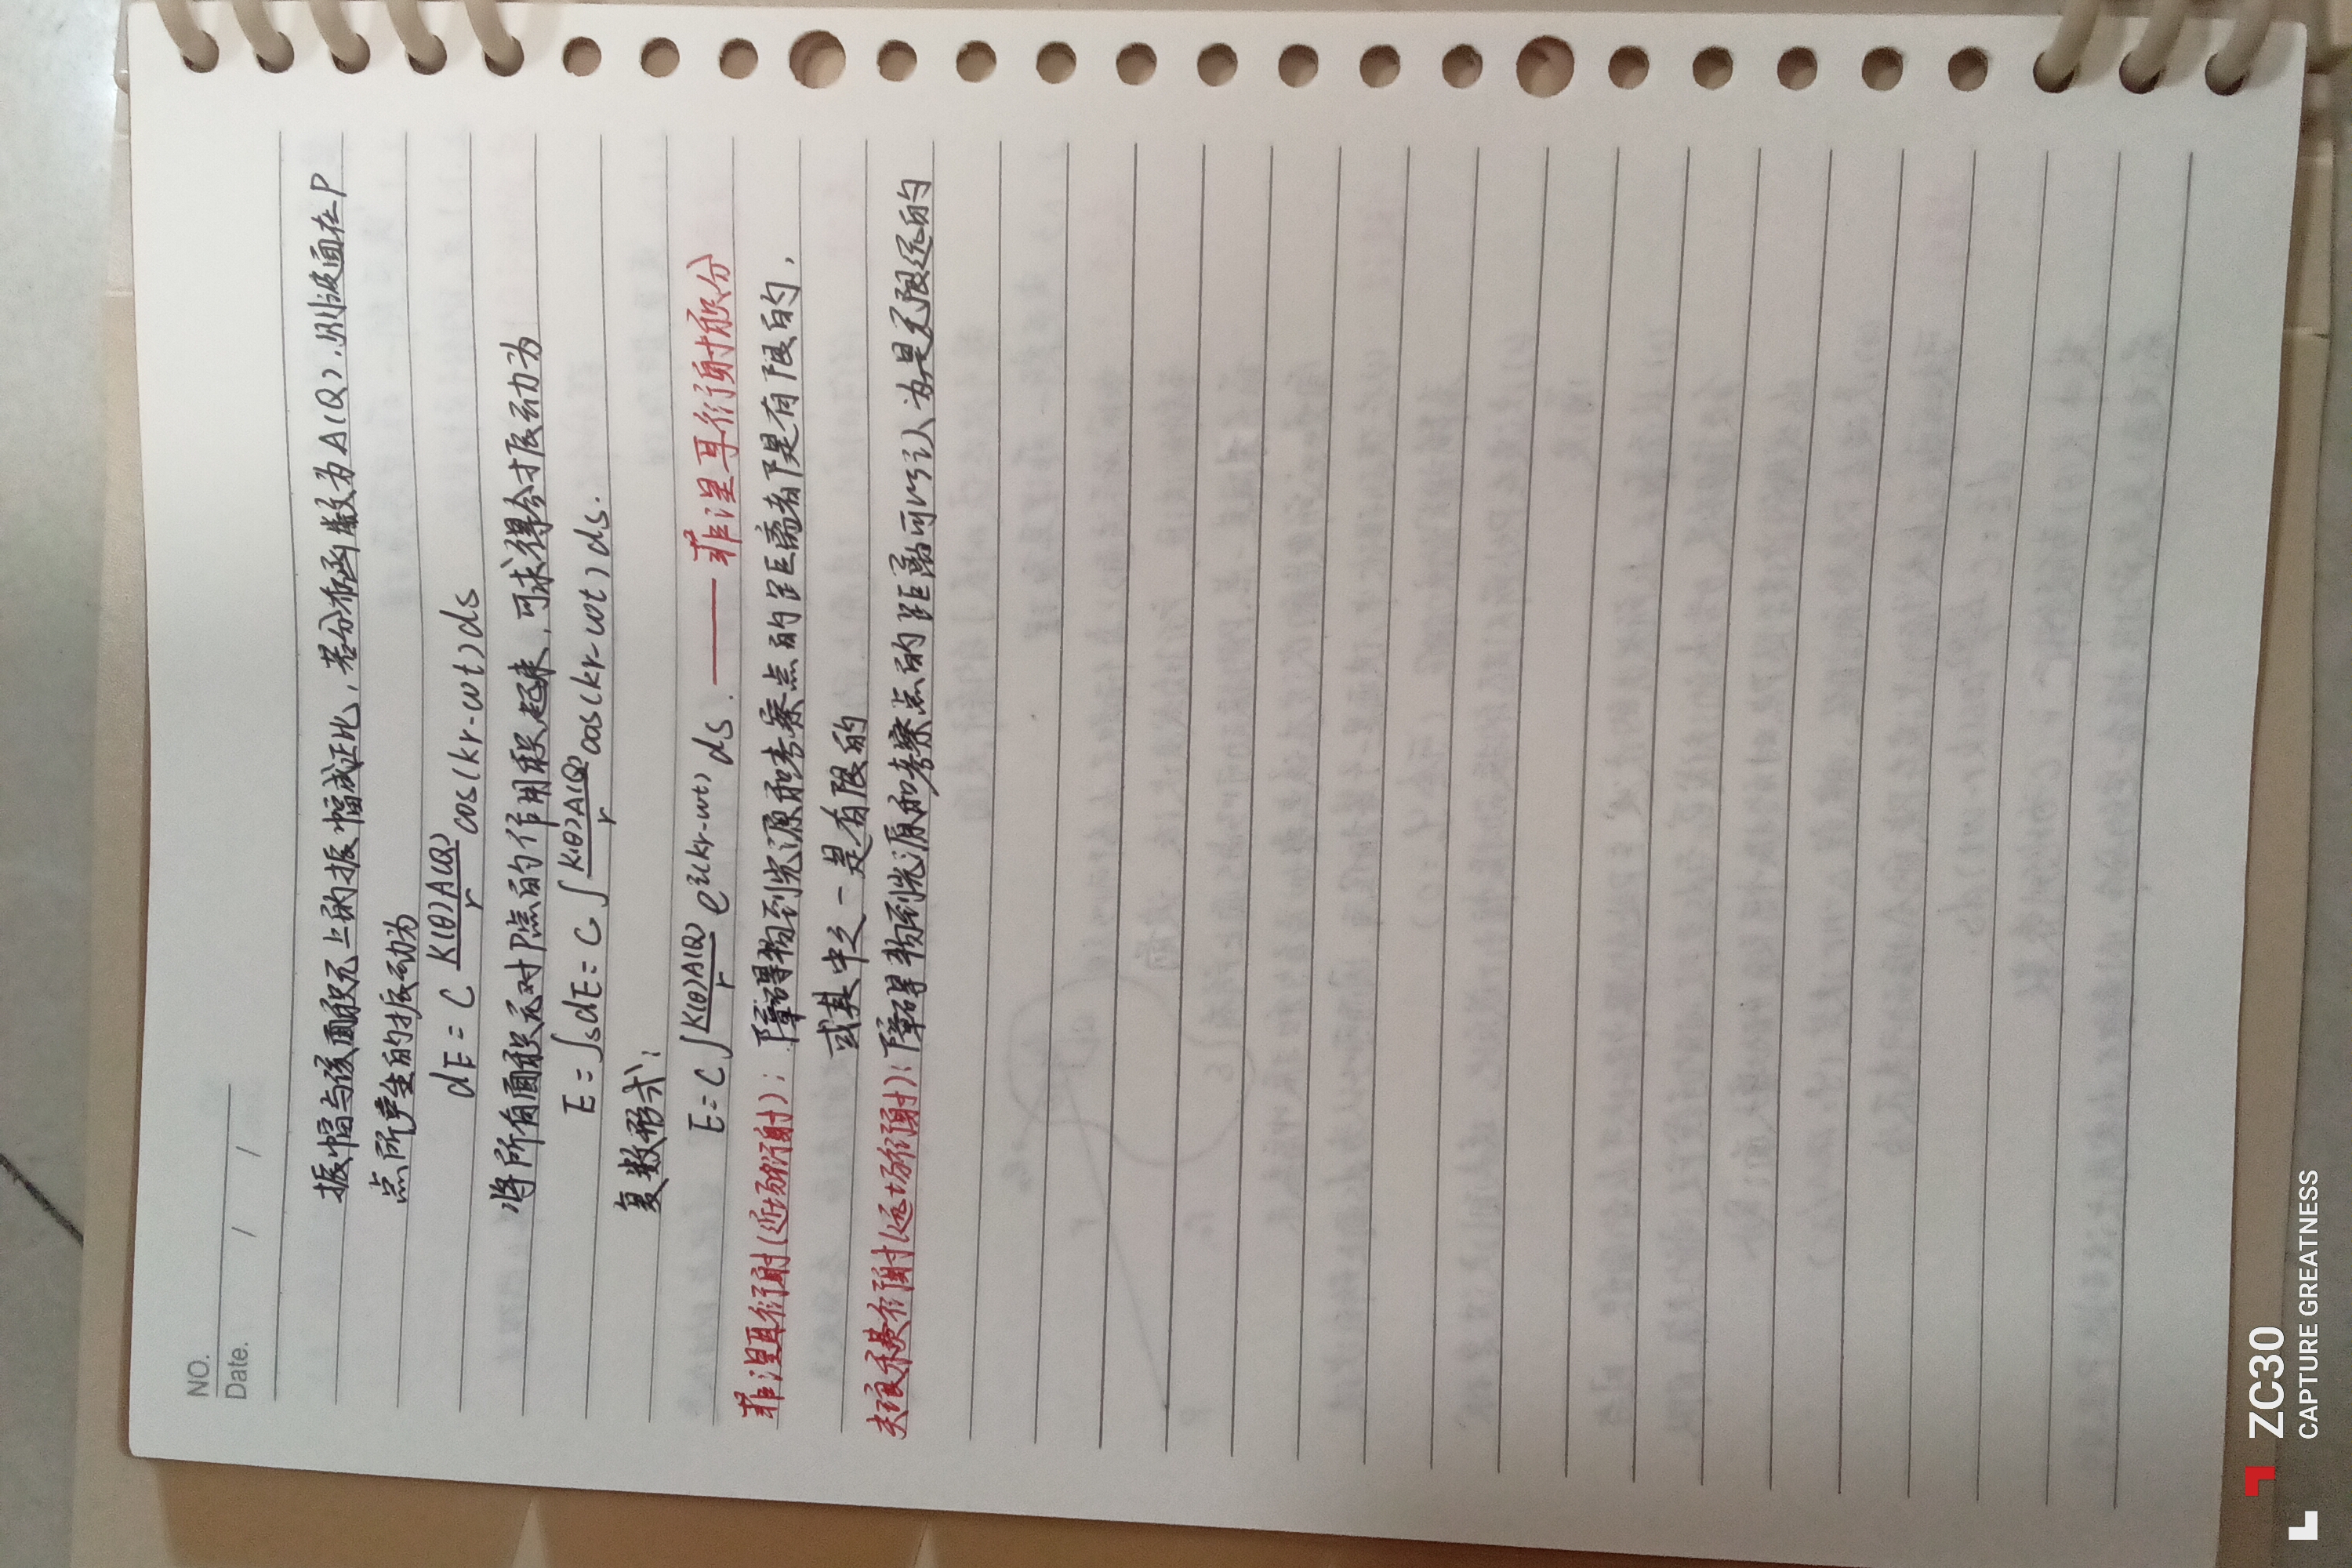 NO.
Date. / /
振幅与该面积元上的振幅成正比，若分布函数为A(Q)，则波面在P
点所产生的振动为
dE = C K(θ)A(Q)/r cos(kr-wt)ds
将所有面积元对P点的作用积起来，可求得合振动为
E = ∫s dE = C ∫ K(θ)A(Q)/r cos(kr-wt)ds.
复数形式：
E = C ∫ K(θ)A(Q)/r e^i(kr-wt) ds. —— 菲涅耳衍射积分
菲涅耳衍射(近场衍射)：障碍物到光源和考察点的距离都是有限的，
或其中之一是有限的
夫琅禾费衍射(远场衍射)：障碍物到光源和考察点的距离可以认为是无限远的
ZC30
CAPTURE GREATNESS